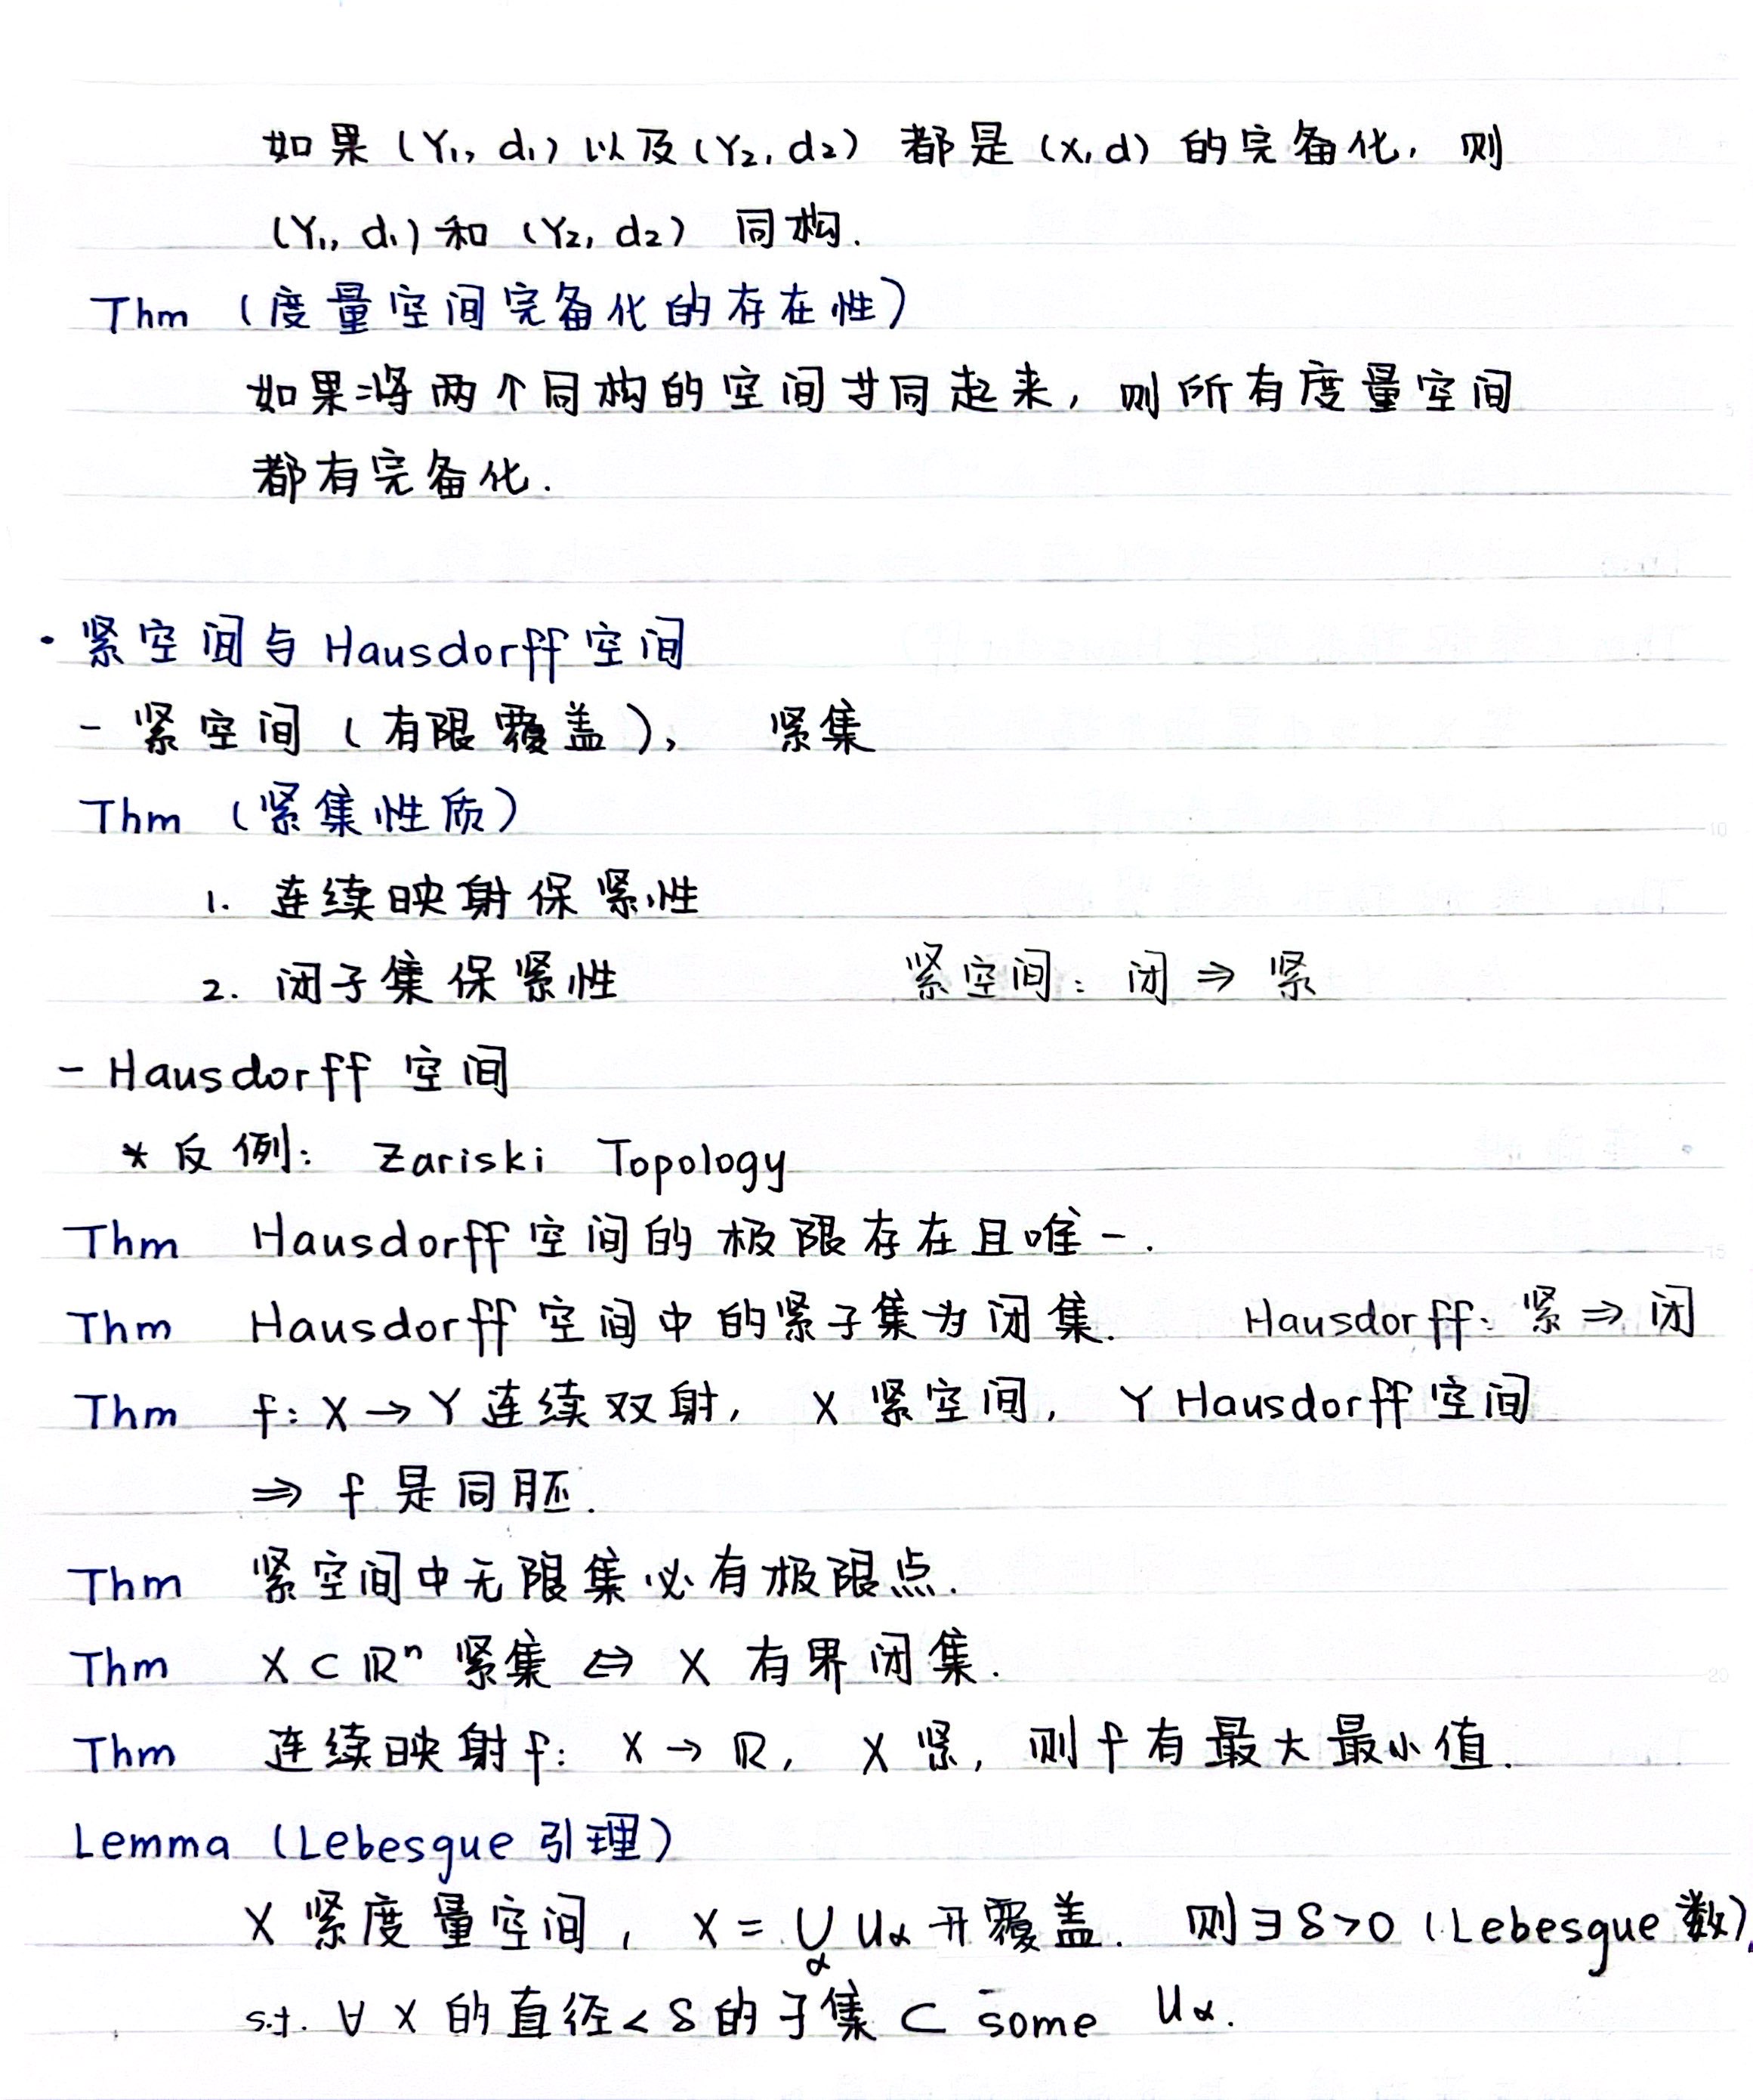 如果 (Y₁, d₁) 以及 (Y₂, d₂) 都是 (X, d) 的完备化, 则
(Y₁, d₁) 和 (Y₂, d₂) 同构.
Thm (度量空间完备化的存在性)
如果将两个同构的空间共同起来, 则所有度量空间
都有完备化.
· 紧空间与 Hausdorff 空间
- 紧空间 (有限覆盖), 紧集
Thm (紧集性质)
1. 连续映射保紧性
2. 闭子集保紧性 紧空间: 闭 ⇒ 紧
- Hausdorff 空间
* 反例: Zariski Topology
Thm Hausdorff 空间的极限存在且唯一.
Thm Hausdorff 空间中的紧子集为闭集. Hausdorff: 紧 ⇒ 闭
Thm f: X → Y 连续双射, X 紧空间, Y Hausdorff 空间
⇒ f 是同胚.
Thm 紧空间中无限集必有极限点.
Thm X ⊂ ℝⁿ 紧集 ⇔ X 有界闭集.
Thm 连续映射 f: X → ℝ, X 紧, 则 f 有最大最小值.
Lemma (Lebesgue 引理)
X 紧度量空间, X = ⋃_α U_α 开覆盖. 则 ∃ δ > 0 (Lebesgue 数),
s.t. ∀ X 的直径 < δ 的子集 ⊂ some U_α.